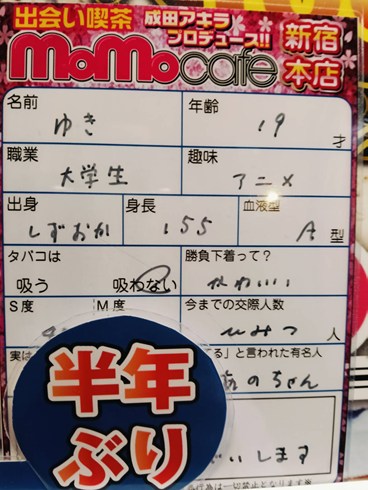 出会い喫茶 成田アキラ
プロデュース!! 新宿
MoMocafe 本店
名前 ゆき
年齢 19 才
職業 大学生
趣味 アニメ
出身 しずおか
身長 155
血液型 A 型
タバコは
吸う 吸わない
勝負下着って?
かわいい
S度 M度
今までの交際人数
ひみつ 人
実は 」と言われた有名人
あのちゃん
半年
ぶり
します
行為は一切禁止となります※